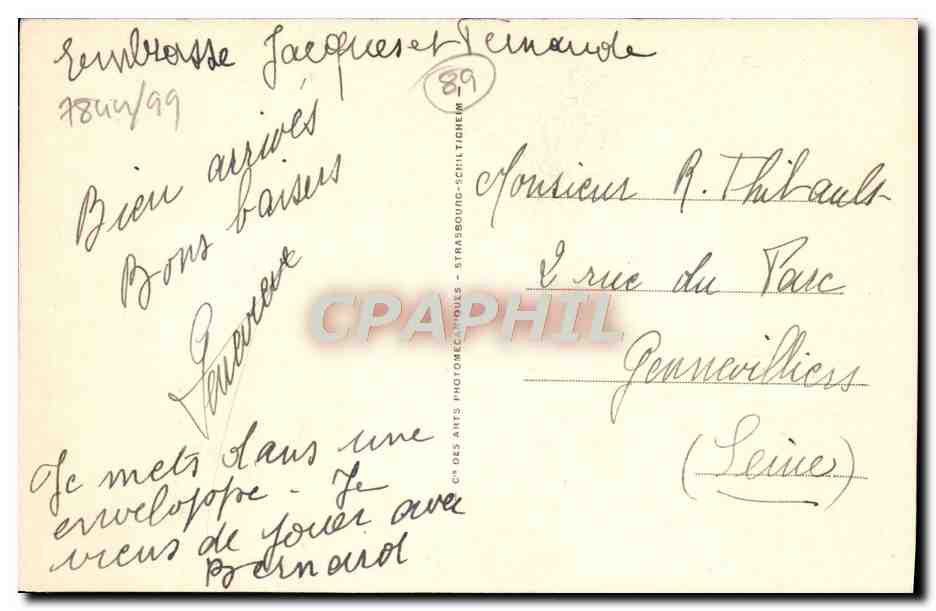 Embrasse Jacques et Fernande
7844/99
89
Bien arrivés
Bons baisers
Geneviève
Je mets dans une
enveloppe - Je
viens de jouer avec
Bernard
Cie DES ARTS PHOTOMECANIQUES - STRASBOURG-SCHILTIGHEIM
Monsieur R. Thibault
2 rue du Parc
Gennevilliers
(Seine)
CPAPHIL